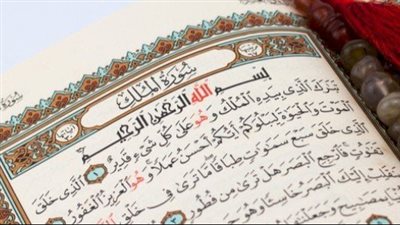 سُورَةُ المُلْكِ
بِسْمِ اللهِ الرَّحْمٰنِ الرَّحِيمِ
تَبٰرَكَ الَّذِي بِيَدِهِ الْمُلْكُ وَهُوَ عَلٰى كُلِّ شَيْءٍ قَدِيرٌ ١ الَّذِي خَلَقَ
الْمَوْتَ وَالْحَيٰوةَ لِيَبْلُوَكُمْ أَيُّكُمْ أَحْسَنُ عَمَلًا وَهُوَ الْعَزِيزُ الْغَفُورُ
الَّذِي خَلَقَ سَبْعَ سَمٰوٰتٍ طِبَاقًا مَا تَرٰى فِي
تَفٰوُتٍ فَارْجِعِ الْبَصَرَ هَلْ تَرٰى مِنْ فُطُورٍ
يَنْقَلِبْ إِلَيْكَ الْبَصَرُ خَاسِئًا وَهُوَ
بِمَصٰبِيحَ وَجَعَلْنٰهَا